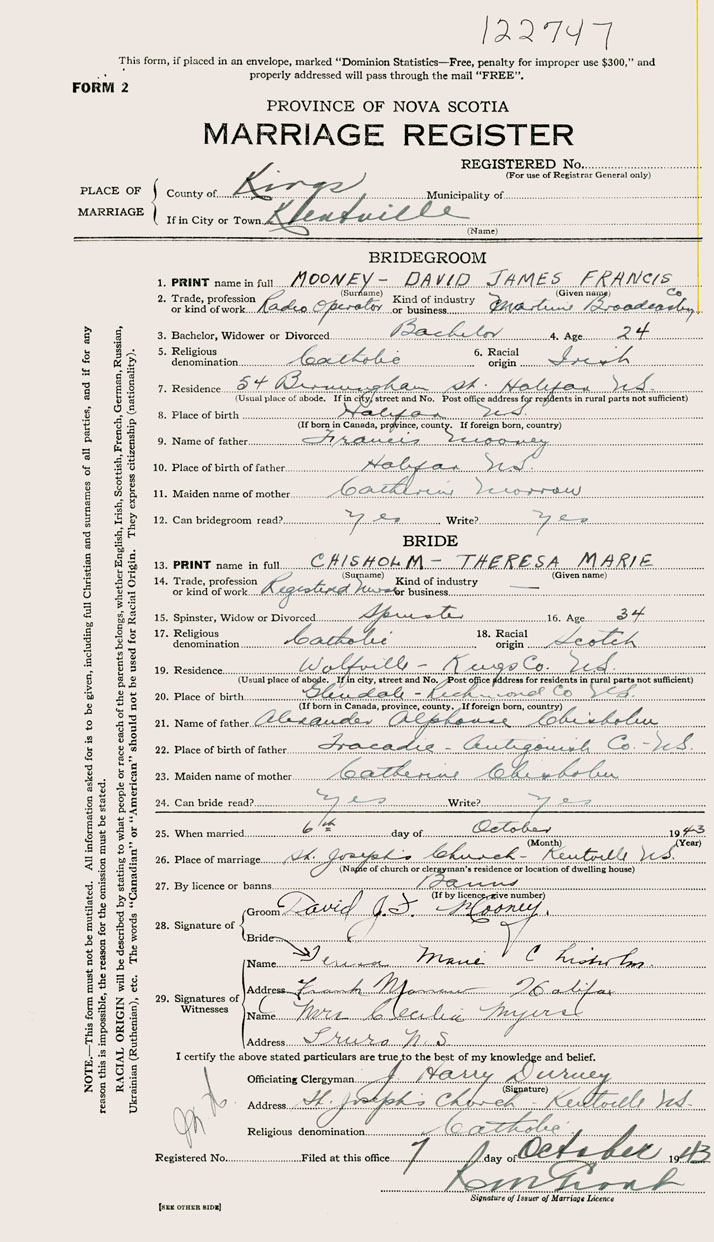 122747
This form, if placed in an envelope, marked "Dominion Statistics—Free, penalty for improper use $300," and
properly addressed will pass through the mail "FREE".
FORM 2
PROVINCE OF NOVA SCOTIA
MARRIAGE REGISTER
REGISTERED No.
(For use of Registrar General only)
PLACE OF MARRIAGE
County of Kings Municipality of
If in City or Town Kentville
(Name)
BRIDEGROOM
1. PRINT name in full MOONEY - DAVID JAMES FRANCIS
(Surname) (Given name)
2. Trade, profession or kind of work Radio Operator Kind of industry or business Maritime Broadcasting Co
3. Bachelor, Widower or Divorced Bachelor 4. Age 24
5. Religious denomination Catholic 6. Racial origin Irish
7. Residence 54 Birmingham St. Halifax N.S.
(Usual place of abode. If in city, street and No. Post office address for residents in rural parts not sufficient)
8. Place of birth Halifax N.S.
(If born in Canada, province, county. If foreign born, country)
9. Name of father Francis Mooney
10. Place of birth of father Halifax N.S.
11. Maiden name of mother Catherine Morrow
12. Can bridegroom read? Yes Write? Yes
BRIDE
13. PRINT name in full CHISHOLM - THERESA MARIE
(Surname) (Given name)
14. Trade, profession or kind of work Registered Nurse Kind of industry or business —
15. Spinster, Widow or Divorced Spinster 16. Age 34
17. Religious denomination Catholic 18. Racial origin Scotch
19. Residence Wolfville - Kings Co. N.S.
(Usual place of abode. If in city, street and No. Post office address for residents in rural parts not sufficient)
20. Place of birth Glendale - Richmond Co N.S.
(If born in Canada, province, county. If foreign born, country)
21. Name of father Alexander Alphonse Chisholm
22. Place of birth of father Tracadie - Antigonish Co. - N.S.
23. Maiden name of mother Catherine Chisholm
24. Can bride read? Yes Write? Yes
25. When married 6th day of October 1943
(Month) (Year)
26. Place of marriage St. Joseph's Church - Kentville N.S.
(Name of church or clergyman's residence or location of dwelling house)
27. By licence or banns Banns
(If by licence, give number)
28. Signature of
Groom David J. F. Mooney.
Bride
29. Signatures of Witnesses
Name Teresa Marie Chisholm.
Address Frank Halifax
Name Mrs Cecilia Myers
Address Truro N.S.
I certify the above stated particulars are true to the best of my knowledge and belief.
Officiating Clergyman J Harry Durney
(Signature)
Address St. Joseph's Church - Kentville N.S.
Religious denomination Catholic
Registered No. Filed at this office 7 day of October 1943
Signature of Issuer of Marriage Licence
[SEE OTHER SIDE]
NOTE.—This form must not be mutilated. All information asked for is to be given, including full Christian and surnames of all parties, and if for any
reason this is impossible, the reason for the omission must be stated.
RACIAL ORIGIN will be described by stating to what people or race each of the parents belongs, whether English, Irish, Scottish, French, German, Russian,
Ukrainian (Ruthenian), etc. The words "Canadian" or "American" should not be used for Racial Origin. They express citizenship (nationality).